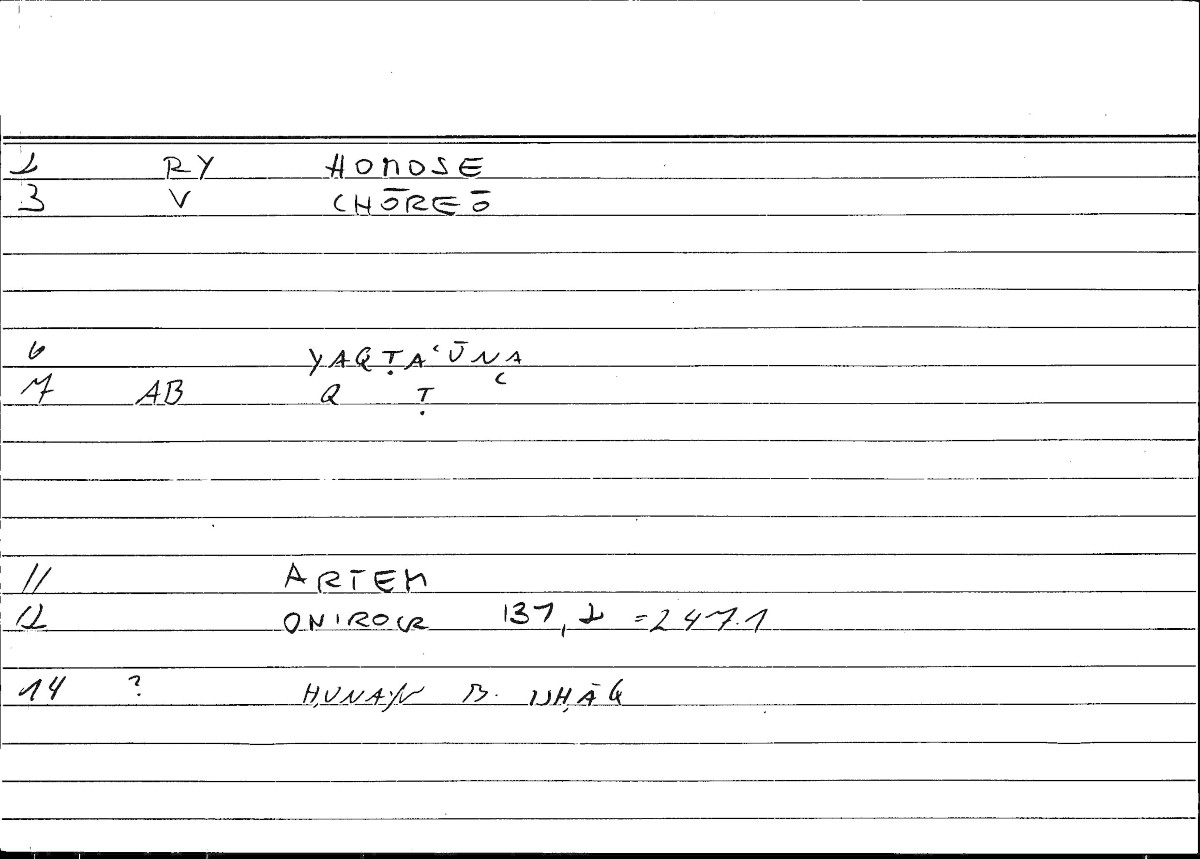 2 RY HOMOSE
3 V CHŌREŌ
6 YAQṬAʿŪNA
7 AB Q Ṭ
11 ARTEM
12 ONIROCR 137,2 =247.1
14 ? ḤUNAYN B. ISḤĀQ